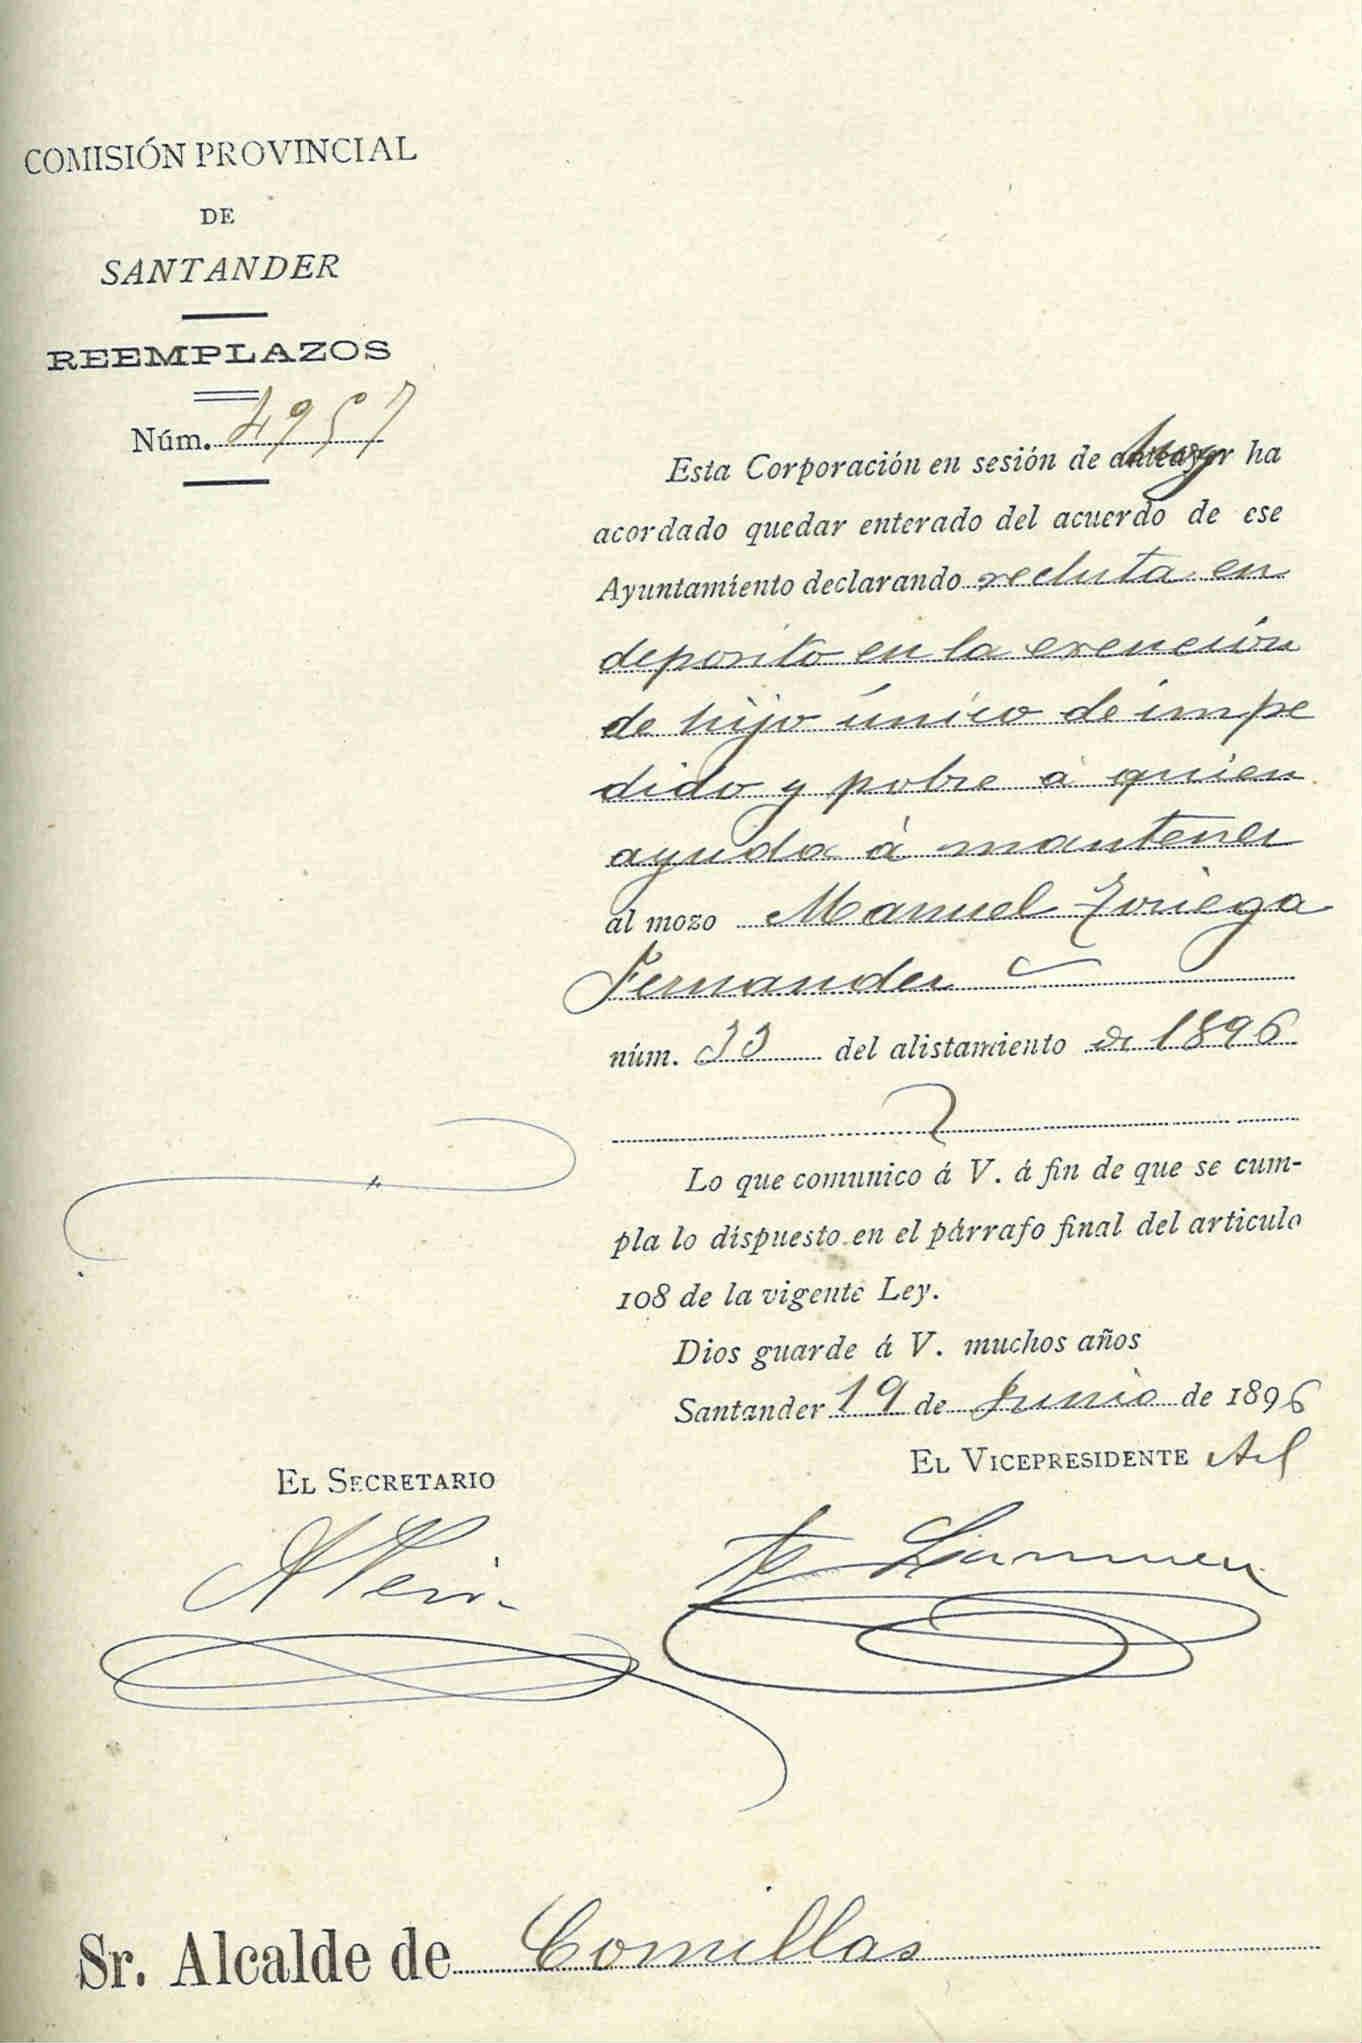 COMISIÓN PROVINCIAL
DE
SANTANDER
REEMPLAZOS
Núm. 4957
Esta Corporación en sesión de hoy ha
acordado quedar enterado del acuerdo de ese
Ayuntamiento declarando recluta en
deposito en la exención
de hijo único de impe
dido y pobre á quien
ayuda á mantener
al mozo Manuel Noriega
Fernandez
núm. 33 del alistamiento de 1896
Lo que comunico á V. á fin de que se cum-
pla lo dispuesto en el párrafo final del articulo
108 de la vigente Ley.
Dios guarde á V. muchos años
Santander 19 de Junio de 1896
EL VICEPRESIDENTE
EL SECRETARIO
Sr. Alcalde de Comillas